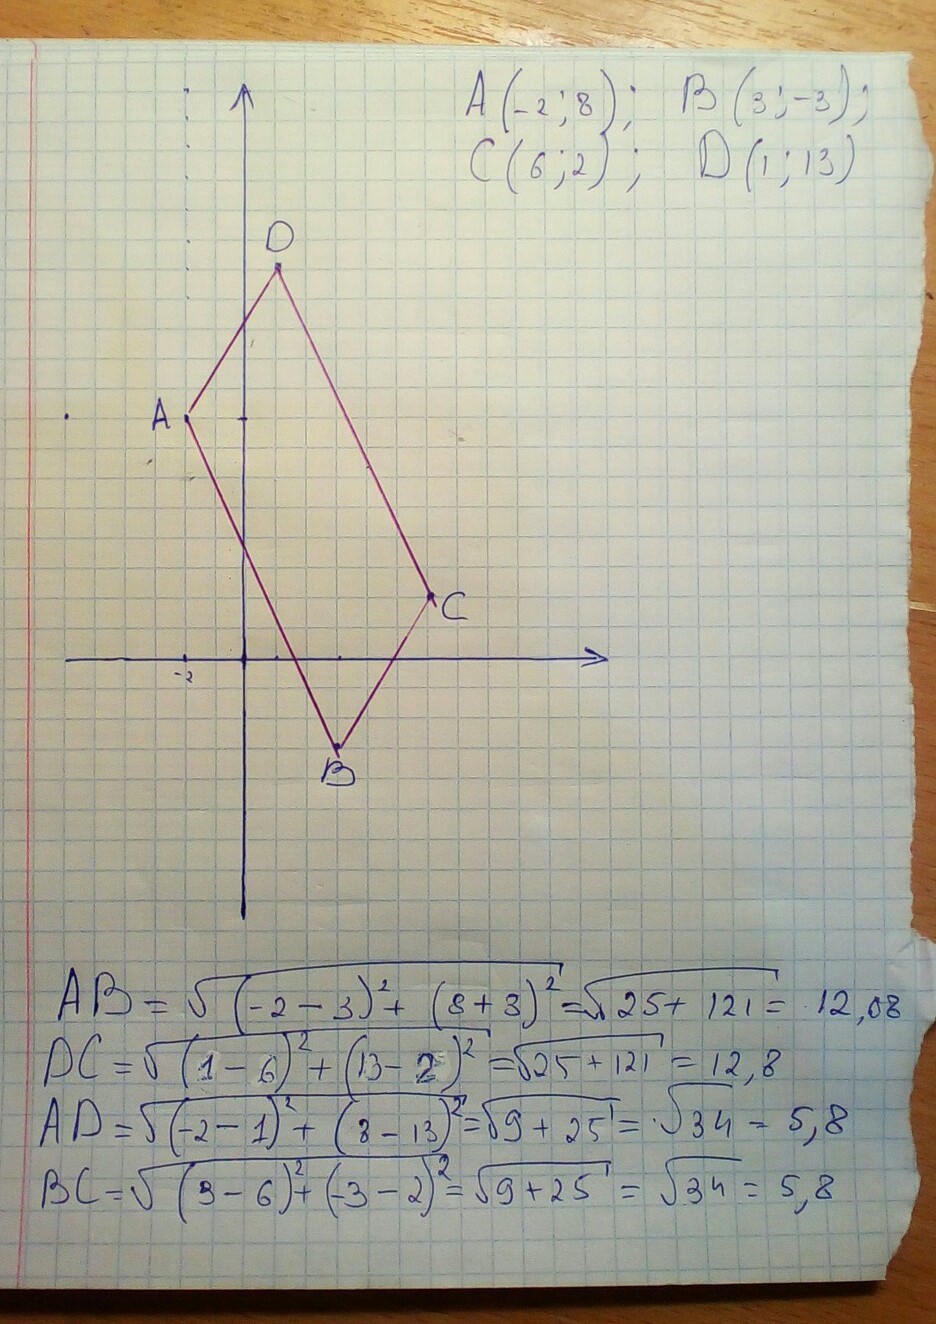 A(-2;8); B(3;-3);
C(6;2); D(1;13)
D
A
C
-2
B
AB = √(-2-3)²+(8+3)² = √25+121 = 12,08
DC = √(1-6)²+(13-2)² = √25+121 = 12,8
AD = √(-2-1)²+(8-13)² = √9+25 = √34 = 5,8
BC = √(3-6)²+(-3-2)² = √9+25 = √34 = 5,8